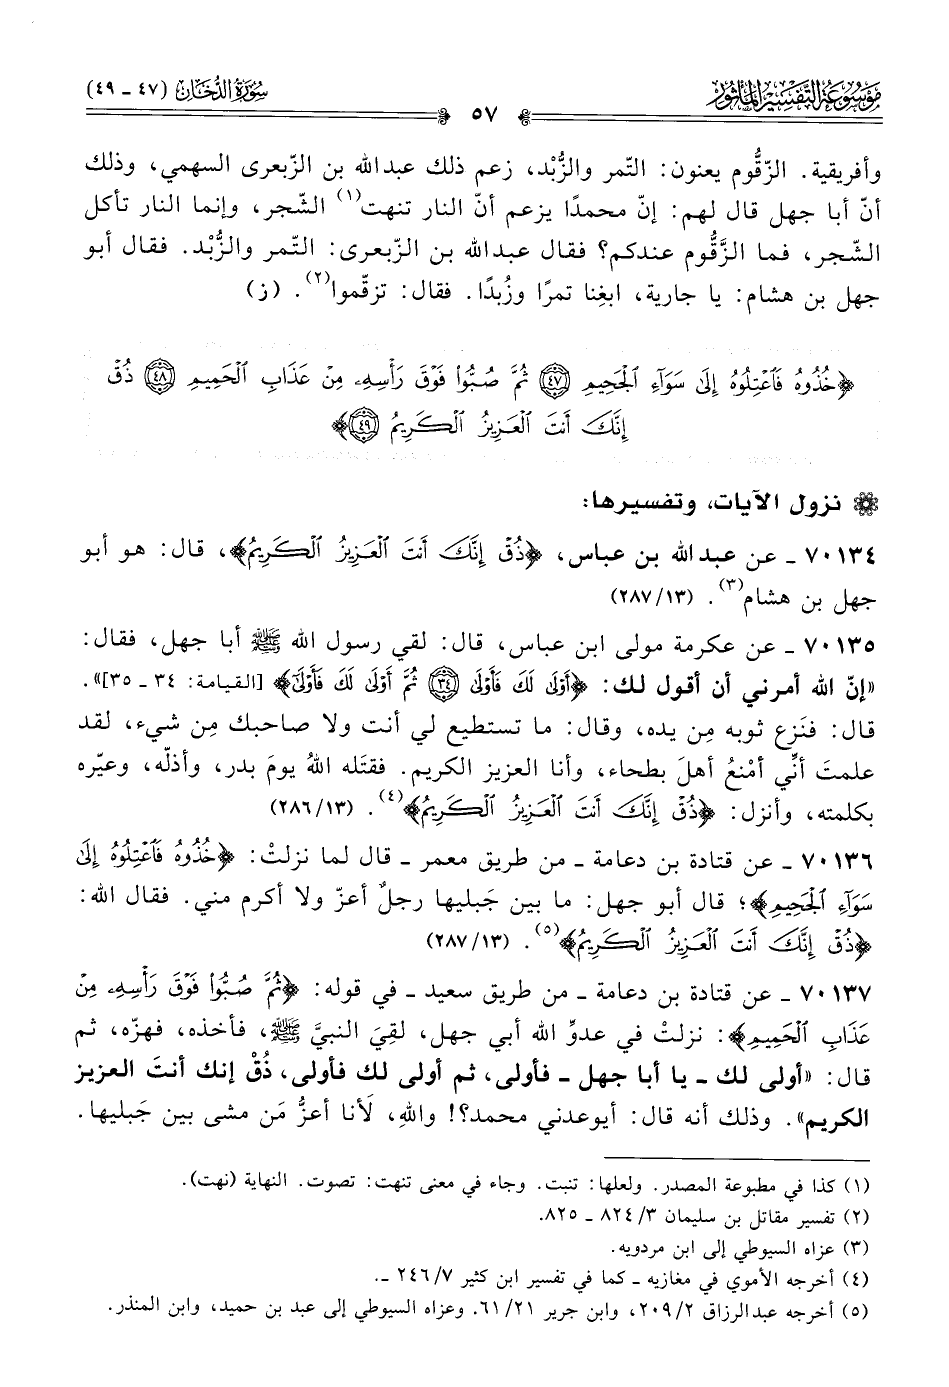 مَوْسُوعَةُ التَّفْسِيرِ المَأْثُورِ
٥٧
سُورَةُ الدُّخَان (٤٧ - ٤٩)
وأفريقية. الزّقُّوم يعنون: التّمر والزُّبْد، زعم ذلك عبدالله بن الزّبعرى السهمي، وذلك
أنّ أبا جهل قال لهم: إنّ محمدًا يزعم أنّ النار تنهت(١) الشّجر، وإنما النار تأكل
الشّجر، فما الزَّقُّوم عندكم؟ فقال عبدالله بن الزّبعرى: التّمر والزُّبْد. فقال أبو
جهل بن هشام: يا جارية، ابغِنا تمرًا وزُبدًا. فقال: تزقّموا(٢). (ز)
﴿خُذُوهُ فَٱعْتِلُوهُ إِلَىٰ سَوَآءِ ٱلْجَحِيمِ ٤٧ ثُمَّ صُبُّوا۟ فَوْقَ رَأْسِهِۦ مِنْ عَذَابِ ٱلْحَمِيمِ ٤٨ ذُقْ
إِنَّكَ أَنتَ ٱلْعَزِيزُ ٱلْكَرِيمُ ٤٩﴾
نزول الآيات، وتفسيرها:
٧٠١٣٤ - عن عبدالله بن عباس، ﴿ذُقْ إِنَّكَ أَنتَ ٱلْعَزِيزُ ٱلْكَرِيمُ﴾، قال: هو أبو
جهل بن هشام(٣). (٢٨٧/١٣)
٧٠١٣٥ - عن عكرمة مولى ابن عباس، قال: لقي رسول الله ﷺ أبا جهل، فقال:
«إنّ الله أمرني أن أقول لك: ﴿أَوْلَىٰ لَكَ فَأَوْلَىٰ ٣٤ ثُمَّ أَوْلَىٰ لَكَ فَأَوْلَىٰٓ﴾ [القيامة: ٣٤ - ٣٥]».
قال: فنَزع ثوبه مِن يده، وقال: ما تستطيع لي أنت ولا صاحبك مِن شيء، لقد
علمتَ أنِّي أمْنعُ أهلَ بطحاء، وأنا العزيز الكريم. فقتَله اللهُ يومَ بدر، وأذلّه، وعيّره
بكلمته، وأنزل: ﴿ذُقْ إِنَّكَ أَنتَ ٱلْعَزِيزُ ٱلْكَرِيمُ﴾(٤). (٢٨٦/١٣)
٧٠١٣٦ - عن قتادة بن دعامة - من طريق معمر - قال لما نزلتْ: ﴿خُذُوهُ فَٱعْتِلُوهُ إِلَىٰ
سَوَآءِ ٱلْجَحِيمِ﴾؛ قال أبو جهل: ما بين جَبليها رجلٌ أعزّ ولا أكرم مني. فقال الله:
﴿ذُقْ إِنَّكَ أَنتَ ٱلْعَزِيزُ ٱلْكَرِيمُ﴾(٥). (٢٨٧/١٣)
٧٠١٣٧ - عن قتادة بن دعامة - من طريق سعيد - في قوله: ﴿ثُمَّ صُبُّوا۟ فَوْقَ رَأْسِهِۦ مِنْ
عَذَابِ ٱلْحَمِيمِ﴾: نزلتْ في عدوِّ الله أبي جهل، لقِيَ النبيَّ ﷺ، فأخذه، فهزّه، ثم
قال: «أولى لك - يا أبا جهل - فأولى، ثم أولى لك فأولى، ذُقْ إنك أنتَ العزيز
الكريم». وذلك أنه قال: أيوعدني محمد؟! واللهِ، لَأنا أعزُّ مَن مشى بين جَبليها.
(١) كذا في مطبوعة المصدر. ولعلها: تنبت. وجاء في معنى تنهت: تصوت. النهاية (نهت).
(٢) تفسير مقاتل بن سليمان ٣/ ٨٢٤ - ٨٢٥.
(٣) عزاه السيوطي إلى ابن مردويه.
(٤) أخرجه الأموي في مغازيه - كما في تفسير ابن كثير ٧/ ٢٤٦ -.
(٥) أخرجه عبدالرزاق ٢/ ٢٠٩، وابن جرير ٢١/ ٦١. وعزاه السيوطي إلى عبد بن حميد، وابن المنذر.